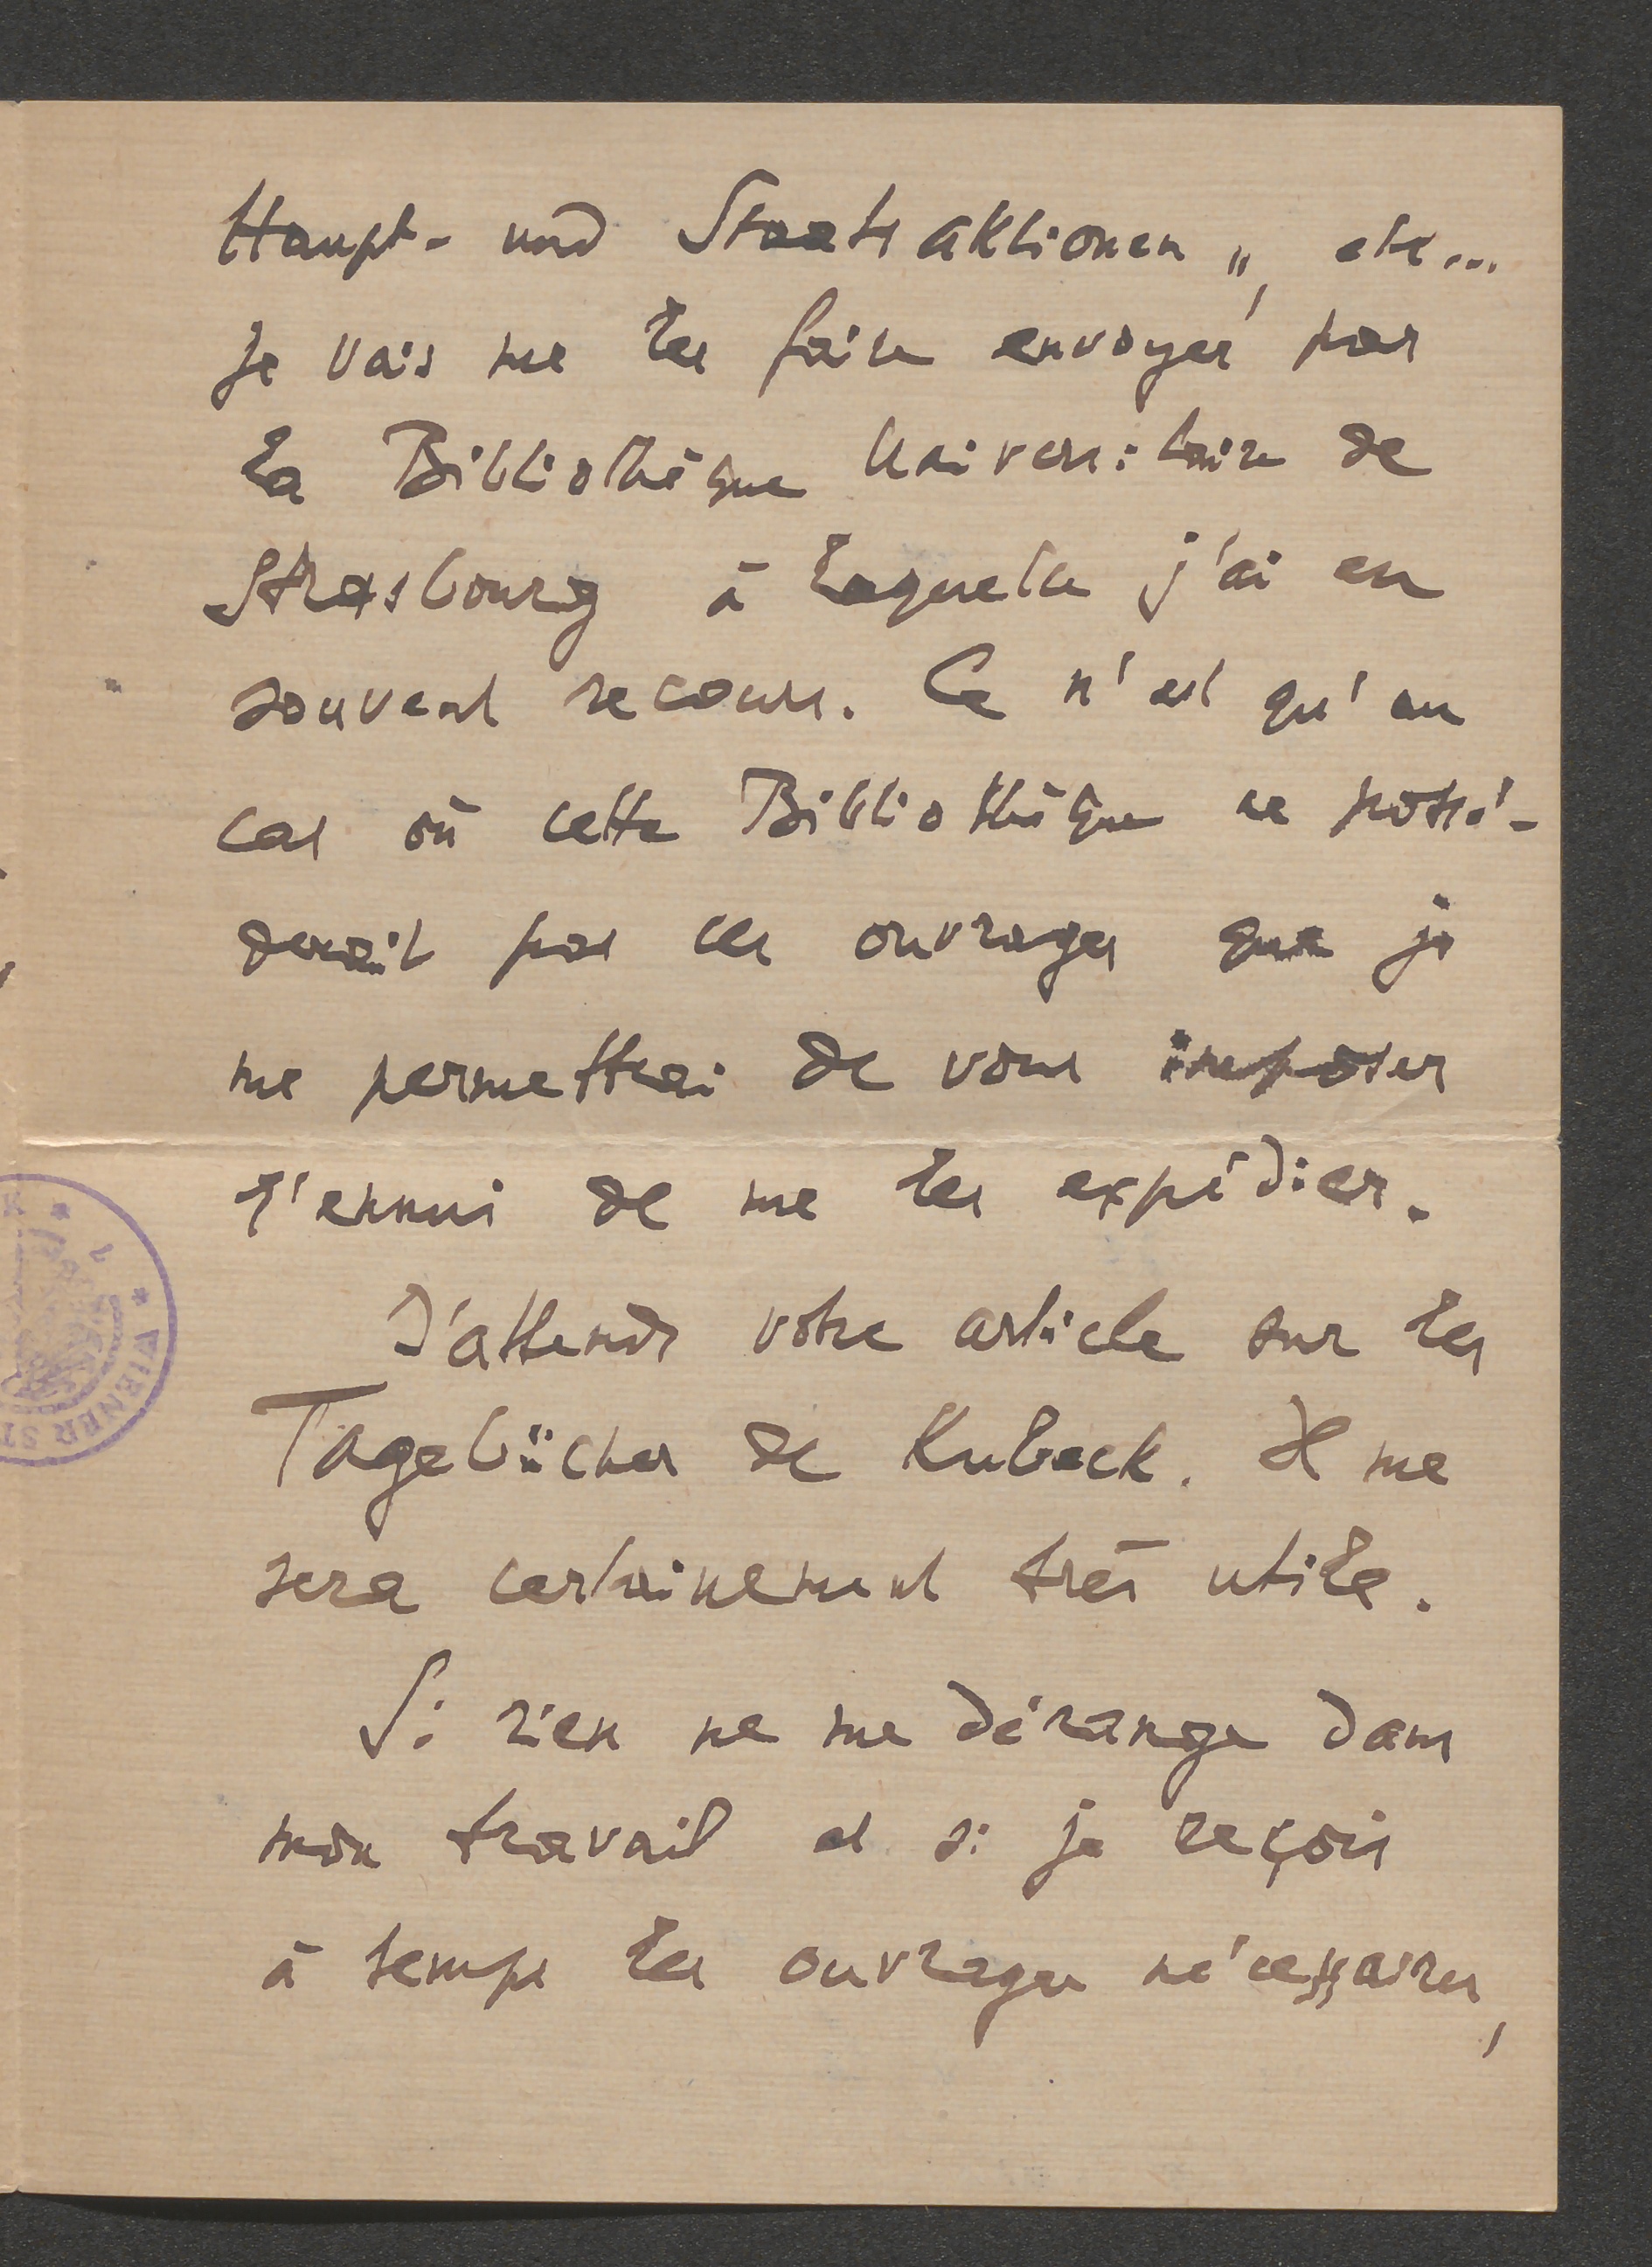 Haupt- und Staatsaktionen", etc...
je vais me les faire envoyer par
la Bibliothèque Universitaire de
Strasbourg à laquelle j'ai eu
souvent recours. Ce n'est qu'au
cas où cette Bibliothèque ne possé-
derait pas ces ouvrages que je
me permettrai de vous imposer
l'ennui de me les expédier.
J'attends votre article sur les
Tagebücher de Kubeck. Il me
sera certainement très utile.
Si rien ne me dérange dans
mon travail et si je reçois
à temps les ouvrages nécessaires,
WIENER ST